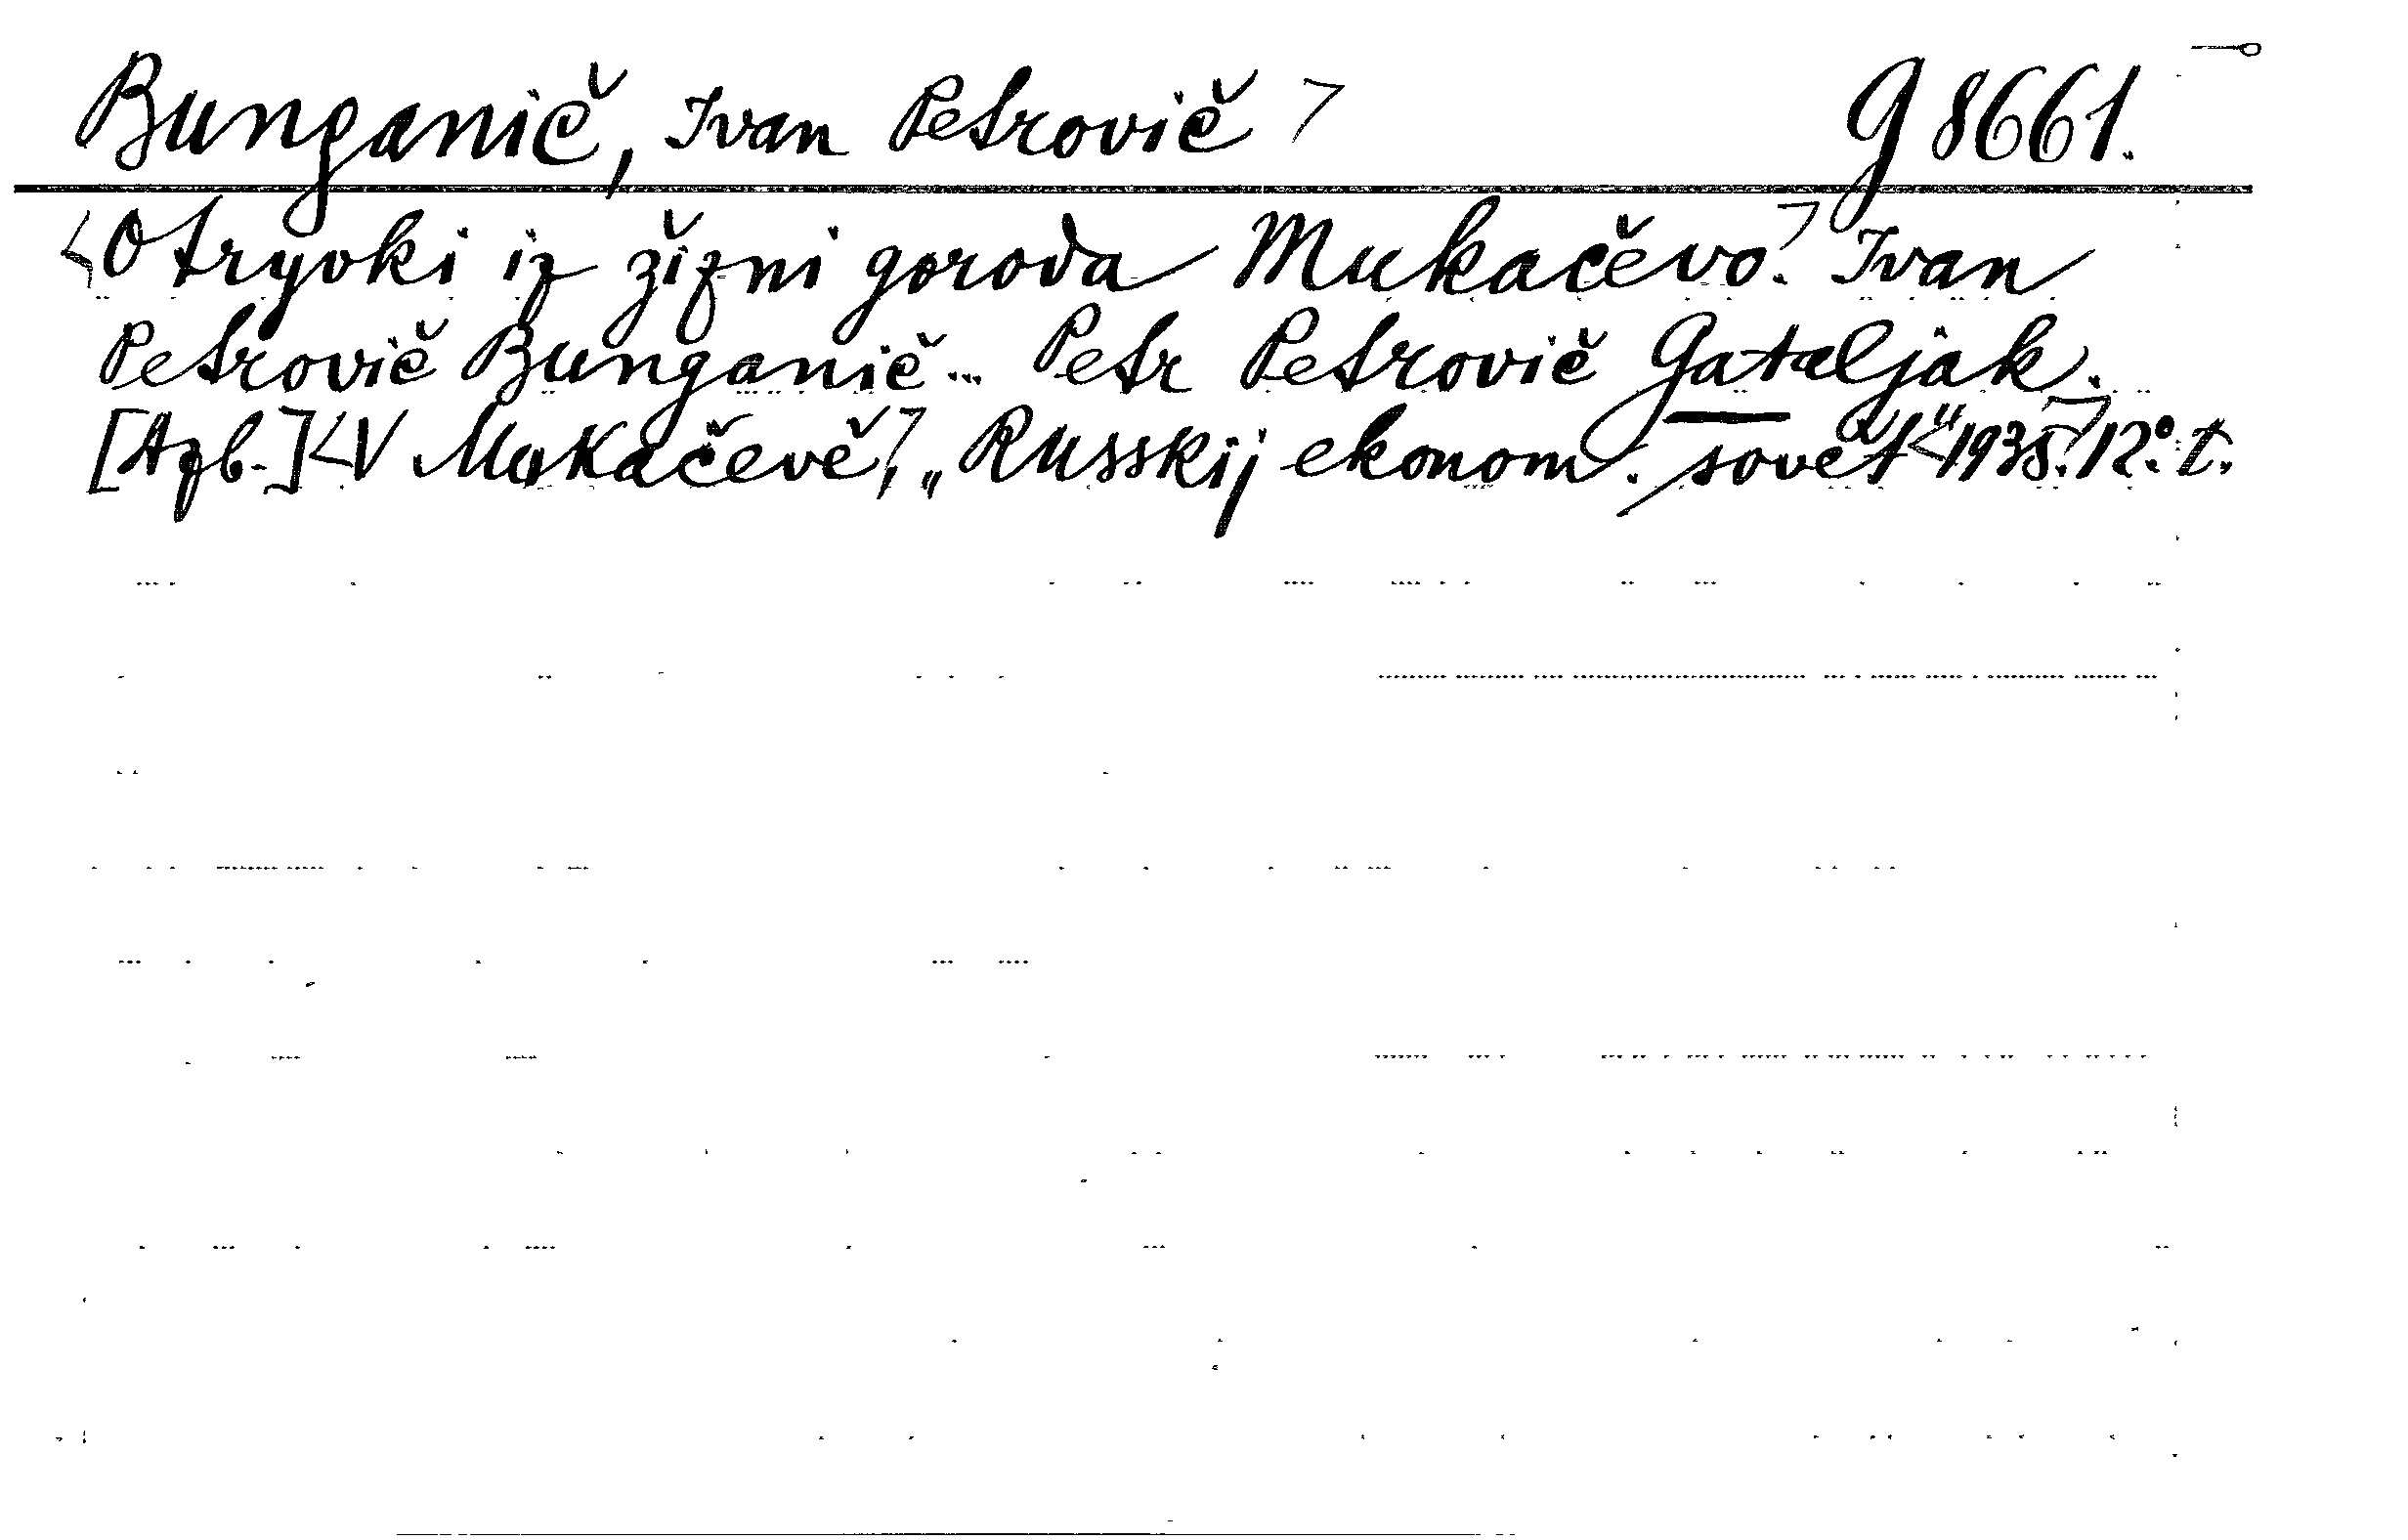 Bunganič, Ivan Petrovič > G 8661.
<Otryvki iz žizni goroda Mukačevo.> Ivan
Petrovič Bunganič... Petr Petrovič Gataljak.
[Azb.] <V Mukačevě,> „Russkij ekonom. sovět“ <1935.> 12°. t.